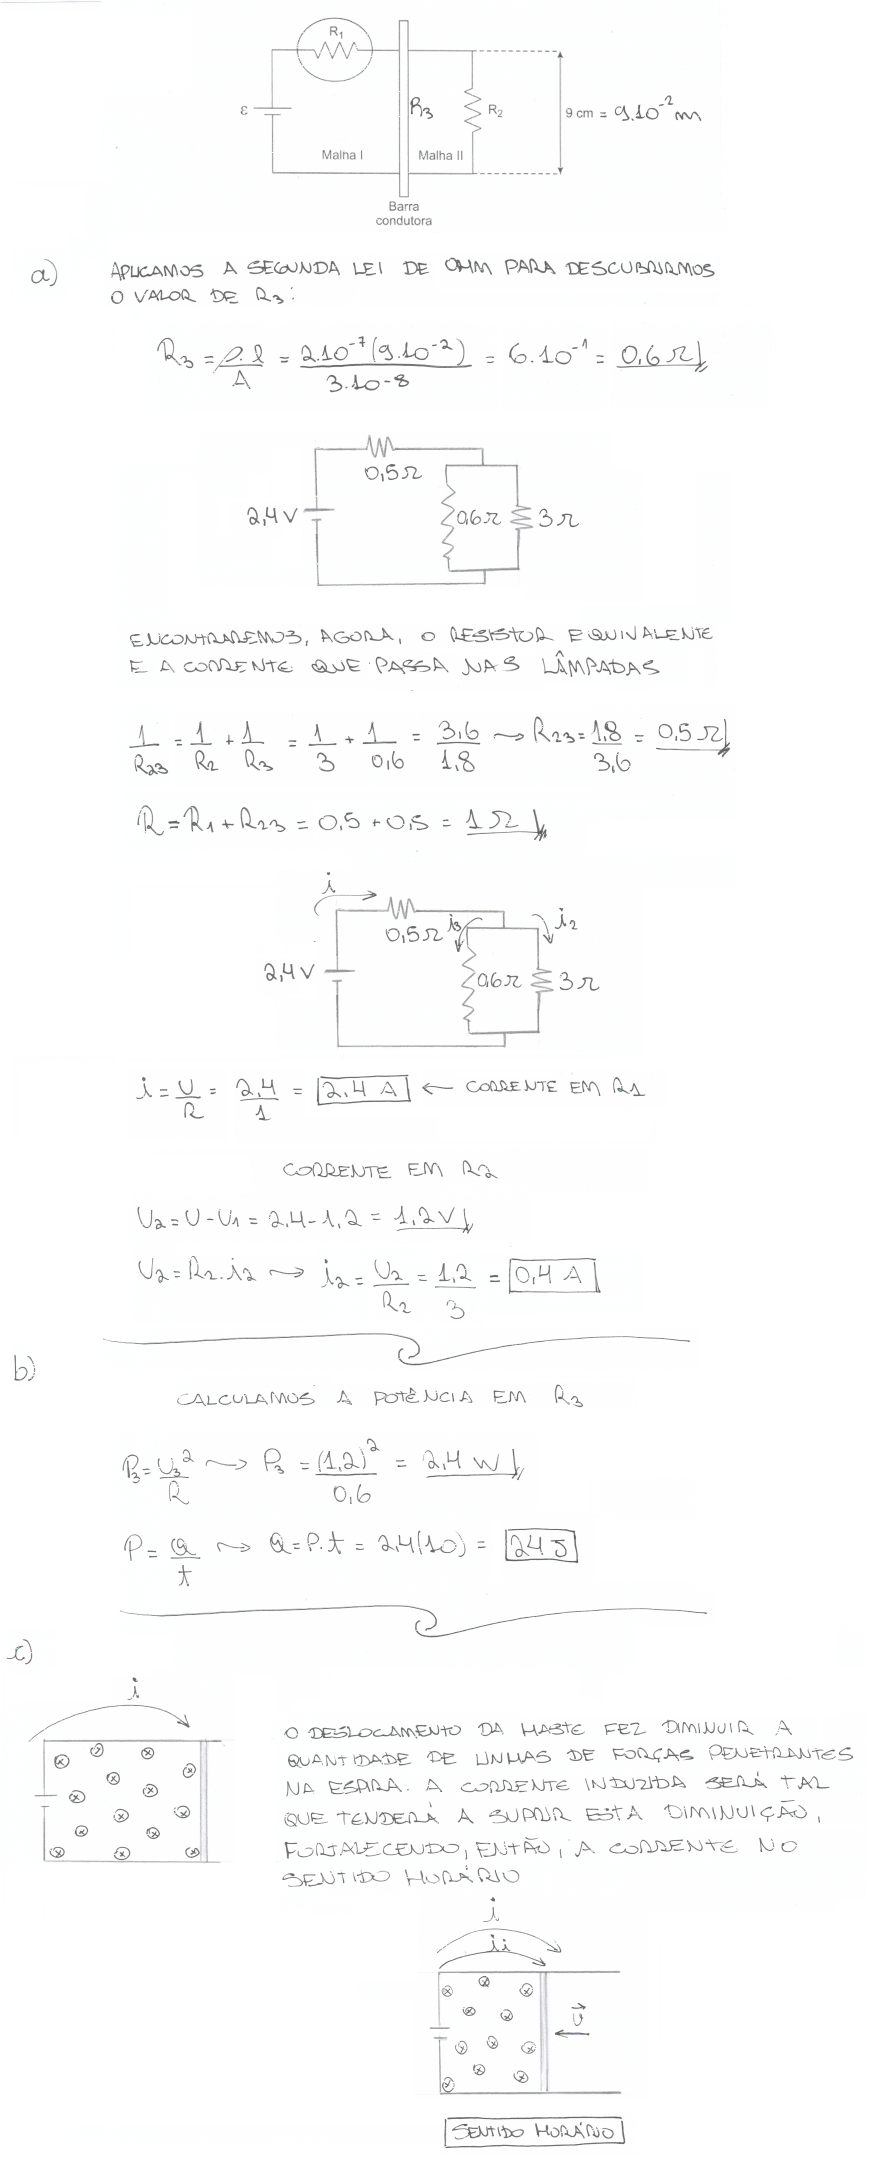 R₁
ε
R₃
R₂
9 cm = 9.10⁻² m
Malha I
Malha II
Barra
condutora
a)
APLICAMOS A SEGUNDA LEI DE OHM PARA DESCUBRIRMOS
O VALOR DE R₃:
R₃ = ρ.l/A = 2.10⁻⁷(9.10⁻²)/3.10-8 = 6.10⁻¹ = 0,6 Ω
0,5 Ω
2,4 V
0,6 Ω
3 Ω
ENCONTRAREMOS, AGORA, O RESISTOR EQUIVALENTE
E A CORRENTE QUE PASSA NAS LÂMPADAS
1/R₂₃ = 1/R₂ + 1/R₃ = 1/3 + 1/0,6 = 3,6/1,8 → R₂₃ = 1,8/3,6 = 0,5 Ω
R = R₁ + R₂₃ = 0,5 + 0,5 = 1 Ω
i
0,5 Ω
i₃
i₂
2,4 V
0,6 Ω
3 Ω
i = U/R = 2,4/1 = 2,4 A ← CORRENTE EM R1
CORRENTE EM R2
U₂ = U - U₁ = 2,4 - 1,2 = 1,2 V
U₂ = R₂.i₂ → i₂ = U₂/R₂ = 1,2/3 = 0,4 A
b)
CALCULAMOS A POTÊNCIA EM R₃
P₃ = U₃²/R → P₃ = (1,2)²/0,6 = 2,4 W
P = Q/t → Q = P.t = 2,4(10) = 24 J
c)
i
O DESLOCAMENTO DA HASTE FEZ DIMINUIR A
QUANTIDADE DE LINHAS DE FORÇAS PENETRANTES
NA ESPIRA. A CORRENTE INDUZIDA SERÁ TAL
QUE TENDERÁ A SUPRIR ESTA DIMINUIÇÃO,
FORTALECENDO, ENTÃO, A CORRENTE NO
SENTIDO HORÁRIO
i
ii
v⃗
SENTIDO HORÁRIO